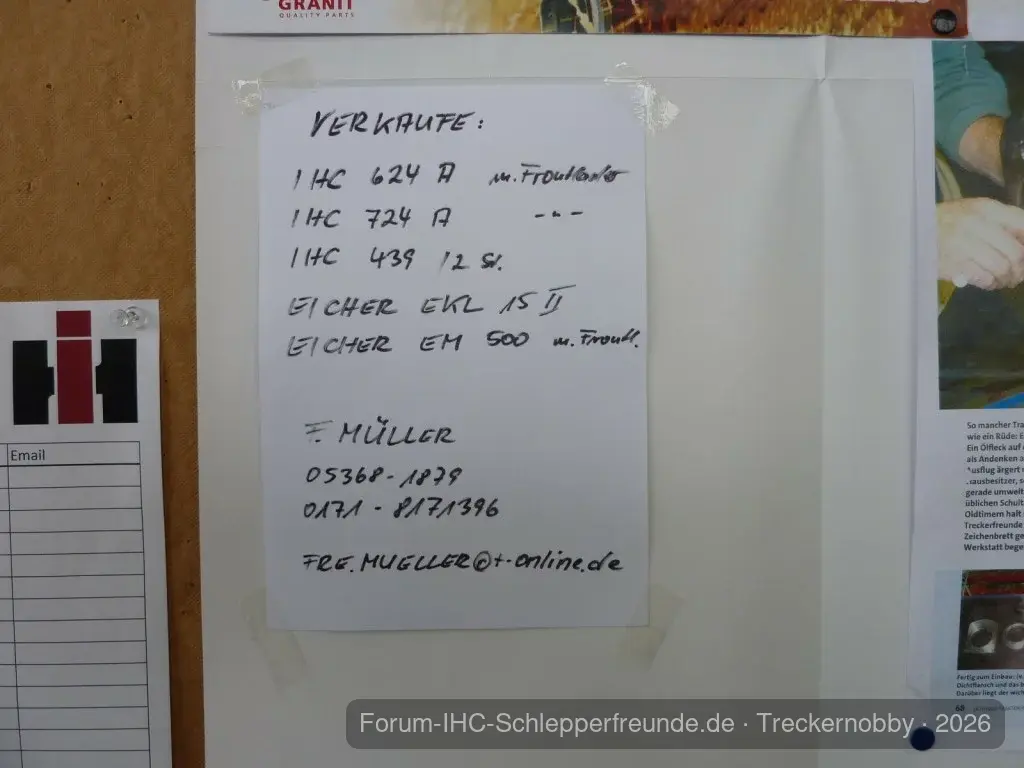 GRANIT
QUALITY PARTS
VERKAUFE:
IHC 624 A m. Frontlader
IHC 724 A -"-
IHC 439 12 St.
EICHER EKL 15 II
EICHER EM 500 m. Frontl.
F. MÜLLER
05368-1879
0171-8171396
FRE.MUELLER@t-online.de
Email
So mancher Tra
wie ein Rüde: E
Ein Ölfleck auf
als Andenken a
usflug ärgert
ausbesitzer, s
gerade umwelt
üblichen Schult
Oldtimern halt
Treckerfreunde
Zeichenbrett ge
Werkstatt bege
Fertig zum Einbau: In
Dichtflansch und das b
Darüber liegt der wich
68
Forum-IHC-Schlepperfreunde.de · Treckernobby · 2026